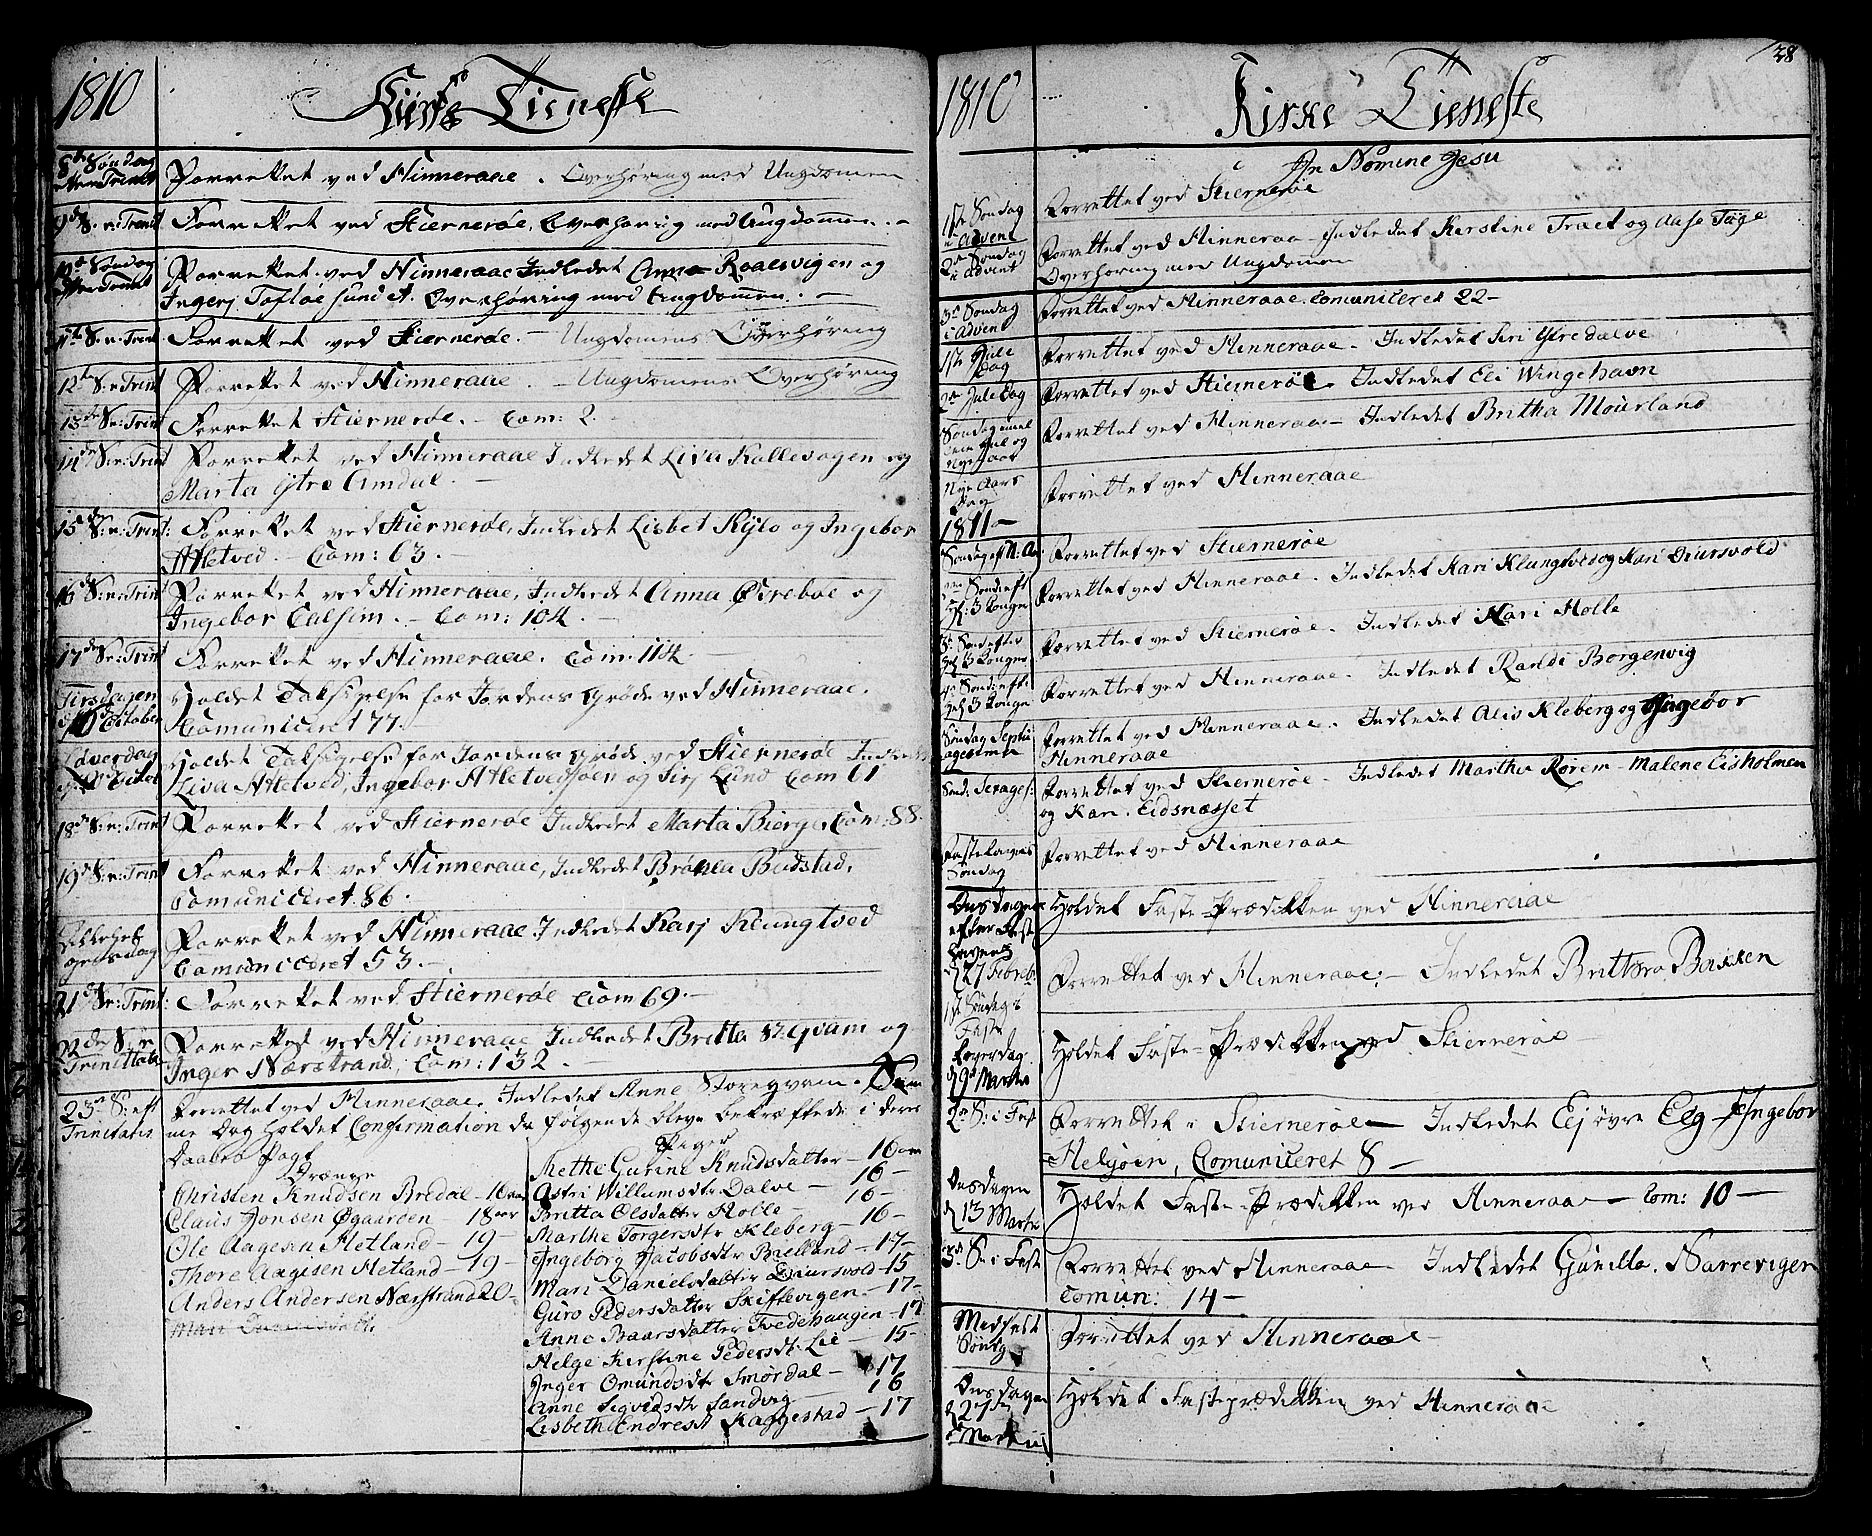 1810 Kirke Tieneste
8de Søndag efter Trinit Forrettet ved Hinneraae. Overhøring med Ungdomen
9de S: e: Trinit Forrettet ved Stiernerøe, Overhøring med Ungdommen. -
10de Søndag efter Trinit Forrettet ved Hinneraae Indledet Anna Roalsvigen og
Ingerj Tofløe sund A. Overhøring med Ungdommen. -
11te S: e: Trinit Forrettet ved Stiernerøe. - Ungdomens Overhøring
12te S: e: Trinit Forrettet ved Hinneraae. - Ungdomens Overhøring
13de S: e: Trinit Forrettet Stiernerøe. - Com: 2. -
14de S: e: Trinit Forrettet ved Hinneraae Indledet Liva Kallevogen og
Marta Ytre Amdal. -
15de S: e: Trinit: Forrettet ved Stiernerøe, Indledet Lisbet Kylo og Ingebor
Atletved. - Com: 63. -
16de S: e: Trinit Forrettet ved Hinneraae, Indledet Anna Øvreboe og
Ingebor Calsim. - Com: 104. -
17de S: e: Trinit Forrettet ved Hinneraae. Com: 114.
Tirsdagen 10 October Holdet Taksigelse for Jordens Grøde ved Hinneraae.
Comuniceret 77.
Løverdag Holdet Taksigelse for Jordens Grøde ved Stiernerøe Indledet
Liva Atletved, Ingebor Atletvedsøen og Sirj Lund Com 61
18de S: e: Trinit Forrettet ved Stiernerøe Indledet Marta Bierge, Com: 88.
19de S: e: Trinit Forrettet ved Hinneraae, Indledet Brønla Budstad,
Comuniceret. 86.
Allehelgensdag Forrettet ved Hinneraae Indledet Karj Klungtved
Comuniceret 53. -
21de S: e: Trinit: Forrettet ved Stiernerøe Com 69. -
22de S: e: Trinitatis Forrettet ved Hinneraae, Indledet Britta St: Gvam og
Inger Nærstrand, Com: 132.
23de S: eft Trinitatis Forrettet ved Hinneraae. Indledet Anne Storegvam. Sam
me Dag holdet Confirmation da følgende bleve bekræftede i deres
Daabes Pagt
Drænge
Christen Knudsen Bredal - 16 aar
Claus Jonsen Øgaarden - 18 aar
Ole Aagesen Hetland - 19 -
Thore Aagesen Hetland - 19 -
Anders Andersen Nærstrand 20 -
Piger
Methe Gurine Knudsdatter - 16 aar
Astri Willumsdtr Dalve - 16 -
Britta Olsdatter Holle - 16 -
Marthe Torgersdtr Kleberg - 16 -
Ingeborg Jacobsdtr Bielland - 17 -
Mari Danielsdatter Diursvold - 15
Guro Pedersdatter Skiftevigen - 17 -
Anne Baarsdatter Tvedehaugen - 17
Helge Kirstine Pedersdt: Lie - 15 -
Inger Omundsdtr Smørdal - 17
Anne Sigvidsdtr Sandvig - 16
Lisbeth Endresdt Kaggestad - 17
1810 Kirke Tieneste 38
In Nomine Jesu
1ste Søndag i Advent Forrettet ved Stiernerøe
2de Søndag i Advent Forrettet ved Hinneraa - Indledet Kirstine Traet og Aase Tøge
Overhøring med Ungdomen
3de Søndag i Advent Forrettet ved Hinneraae. Comuniceret 22 -
1ste Jule Dag Forrettet ved Hinneraae. Indledet Siri Ytredalve
2de Jule Dag Forrettet ved Stiernerøe. Indledet Eli Wingehavn
Søndag imellem Jul og Nye Aar Forrettet ved Hinneraae - Indledet Britha Mourland
Nye Aars Dag Forrettet ved Hinneraae
1811 -
Søndag eft N: A: Forrettet ved Stiernerøe
Sønd: eft Hel: 3 Konger Forrettet ved Hinneraae. Indledet Kari Klungtved og Kari Diursvold
3de Sønd efter Hel: 3 Konger Forrettet ved Stiernerøe. Indledet Kari Holle
4de Sønd: eft Hel: 3 Konge Forrettet ved Hinneraae. Indledet Randi Borgenvig
Søndag Septuagesima Forrettet ved Hinneraae. Indledet Alis Kleberg og Ingebor
Hinneraae
Sønd: Sexages: Forrettet ved Stiernerøe - Indledet Marthe Rørem - Malene Eisholmen
og Kari Eidsnæsset
Fastelavens Søndag Forrettet ved Hinneraae
Onsdagen efter Fastelavens d 27 Febrb: Holdet Faste-Prædikken ved Hinneraae
1ste Søndag i Faste Forrettet ved Hinneraae. - Indledet Brittha Bakken
Løverdag d 9de Martii Holdet Faste-Prædikken ved Stiernerøe -
2de S: i Fast Forrettet i Stiernerøe - Indledet Eli øvre Elg - Ingebor
Helgøen, Comuniceret 8 -
Onsdagen d 13 Marts Holdet Faste-Prædikken ved Hinneraae - Com: 10 -
3de S: i Fast Forrettet ved Hinneraae - Indledet Gunilla Narrevigen
Comun: 14 -
Midfast Sønd: Forrettet ved Hinneraae -
Onsdagen d 27de Martii Holdet Fasteprædikken ved Hinneraae